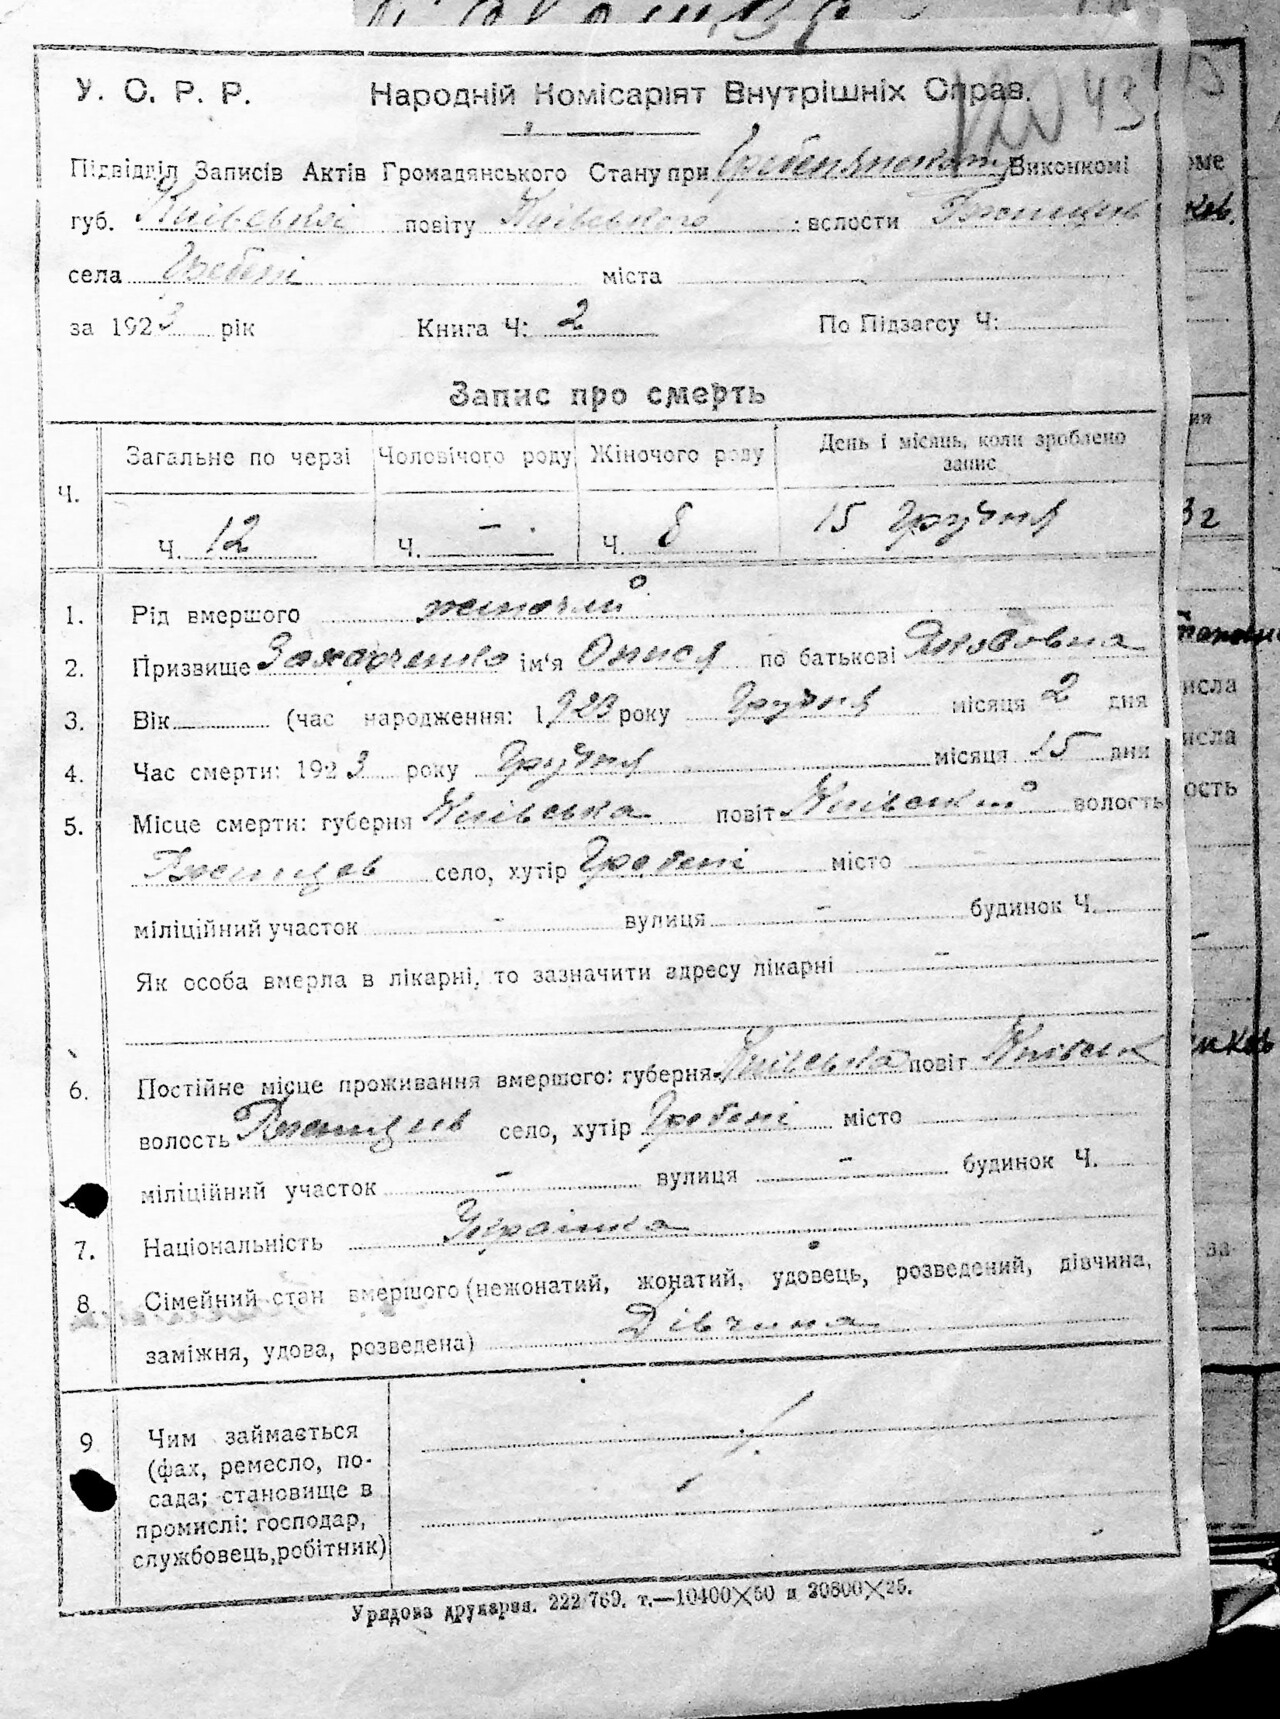 У. С. Р. Р. Народній Комісаріят Внутрішніх Справ.
43
Підвідділ Записів Актів Громадянського Стану при Виконкомі
губ. Київської повіту Київського волости
села Гребені міста
за 1923 рік Книга Ч: 2 По Підзагсу Ч:
Запис про смерть
Ч. Загальне по черзі Чоловічого роду Жіночого роду День і місяць, коли зроблено
запис
Ч. 12 Ч. - Ч. 8 15 Грудня
1. Рід вмершого жіночий
2. Призвище Захарченко ім'я Онися по батькові Якововна
3. Вік (час народження: 1923 року Грудня місяця 2 дня
4. Час смерти: 1923 року Грудня місяця 15 дня
5. Місце смерти: губерня Київська повіт Київський волость
село, хутір Гребені місто
міліційний участок - вулиця - будинок Ч.
Як особа вмерла в лікарні, то зазначити адресу лікарні -
6. Постійне місце проживання вмершого: губерня Київська повіт Київськ
волость село, хутір Гребені місто
міліційний участок - вулиця - будинок Ч.
7. Національність Українка
8. Сімейний стан вмершого (нежонатий, жонатий, удовець, розведений, дівчина,
заміжня, удова, розведена) Дівчина
9 Чим займається
(фах, ремесло, по-
сада; становище в
промислі: господар,
службовець, робітник)
Урядова друкарня. 222/769. т.—10400×50 и 20800×25.